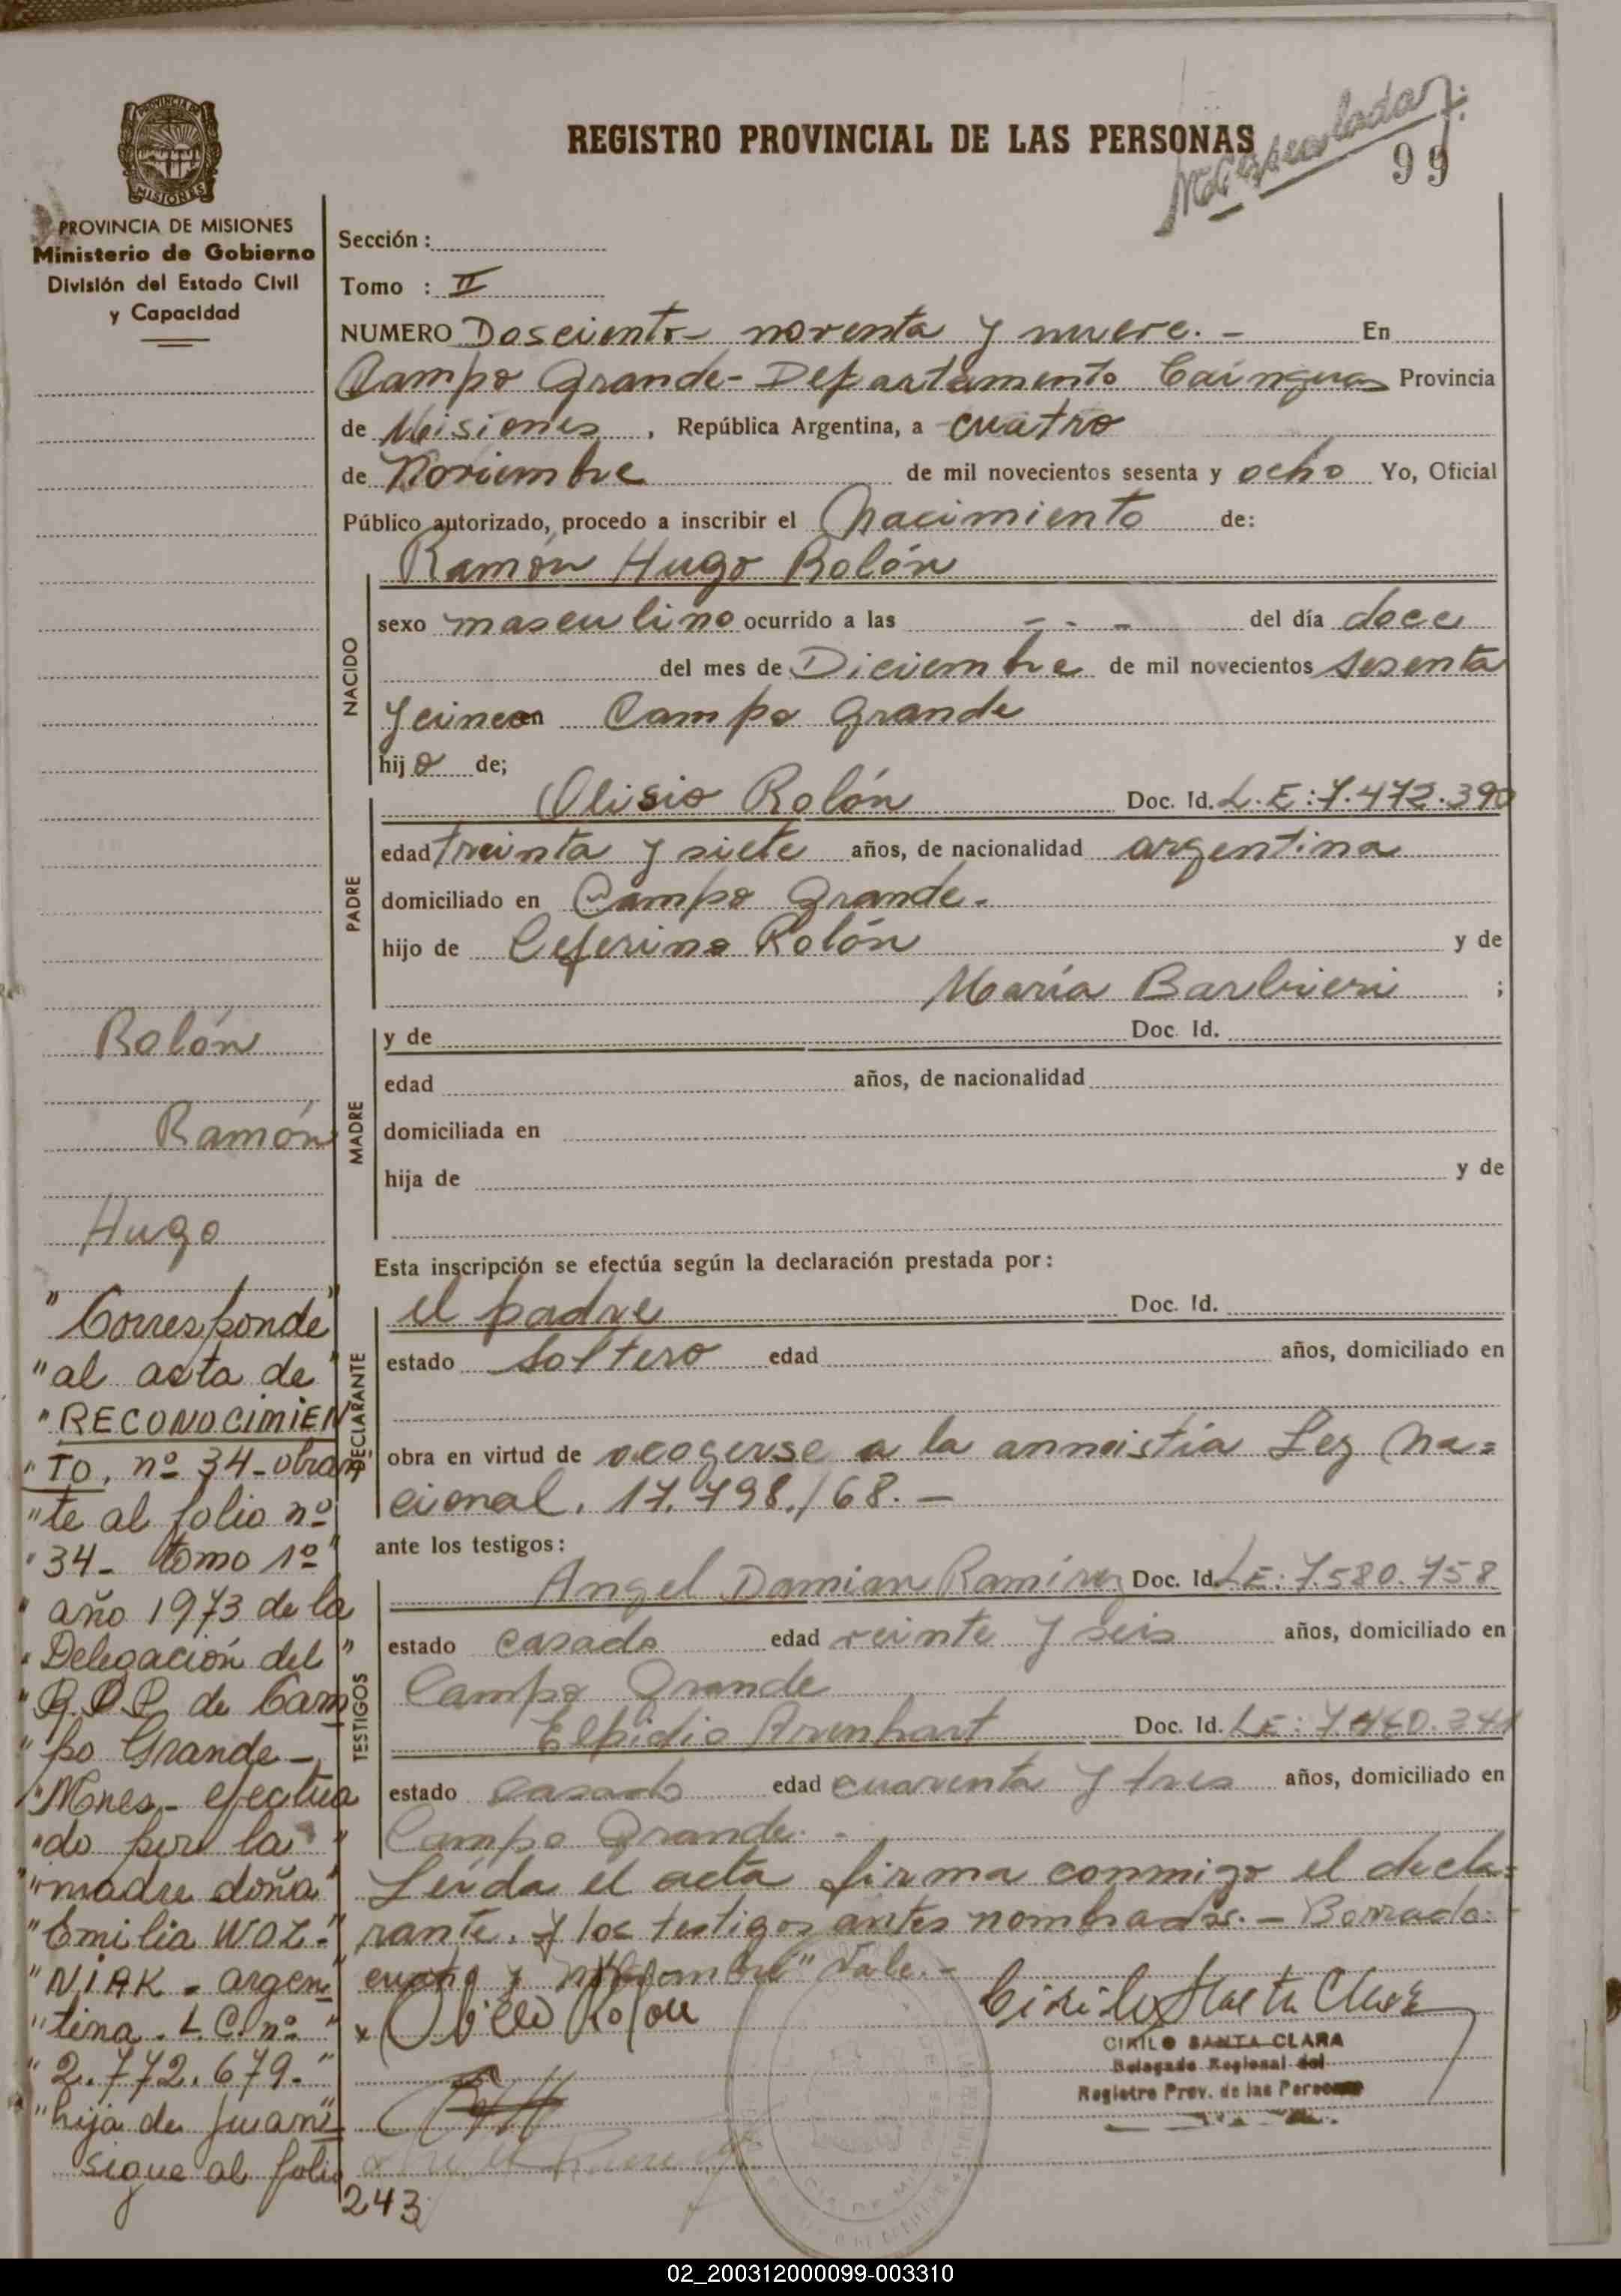 REGISTRO PROVINCIAL DE LAS PERSONAS
99
PROVINCIA DE MISIONES
Ministerio de Gobierno
División del Estado Civil
y Capacidad
Sección :
Tomo : II
NUMERO Doscientos noventa y nueve. - En
Campo Grande - Departamento Cainguas Provincia
de Misiones, República Argentina, a cuatro
de Noviembre de mil novecientos sesenta y ocho Yo, Oficial
Público autorizado, procedo a inscribir el Nacimiento de:
Ramón Hugo Rolón
NACIDO
sexo masculino ocurrido a las - - - del día doce
del mes de Diciembre de mil novecientos sesenta
y cinco en Campo Grande
hijo de;
PADRE
Olisio Rolón Doc. Id. L.E: 7.472.390
edad treinta y siete años, de nacionalidad argentina
domiciliado en Campo Grande.
hijo de Ceferino Rolón y de
María Barbieri ;
MADRE
y de Doc. Id.
edad años, de nacionalidad
domiciliada en
hija de y de
Esta inscripción se efectúa según la declaración prestada por:
DECLARANTE
el padre Doc. Id.
estado soltero edad años, domiciliado en
obra en virtud de acogerse a la amnistia Ley Na=
cional. 17.798./68. -
ante los testigos:
TESTIGOS
Angel Damian Ramírez Doc. Id. LE: 7.580.758
estado casado edad veinte y seis años, domiciliado en
Campo Grande
Elpidio Arenhart Doc. Id. LE: 7.460.341
estado casado edad cuarenta y tres años, domiciliado en
Campo Grande. -
Leída el acta firma conmigo el decla=
rante. y los testigos antes nombrados. - Borrado:
cuatro y noviembre" Vale. -
CIRILO SANTA CLARA
Delegado Regional del
Registro Prov. de las Personas
Rolón
Ramón
Hugo
"Corresponde"
"al acta de"
"RECONOCIMIEN
"TO, nº 34 - obran
"te al folio nº
"34 - tomo 1º"
"año 1973 de la
"Delegación del"
"R.P.P. de Cam
"po Grande -
"Mnes. - efectua
"do por la"
"madre doña"
"Emilia WOZ="
"NIAK - argen=
"tina. L.C. nº "
"2.772.679."
"hija de Juan"
sigue al folio
243
02_200312000099-003310